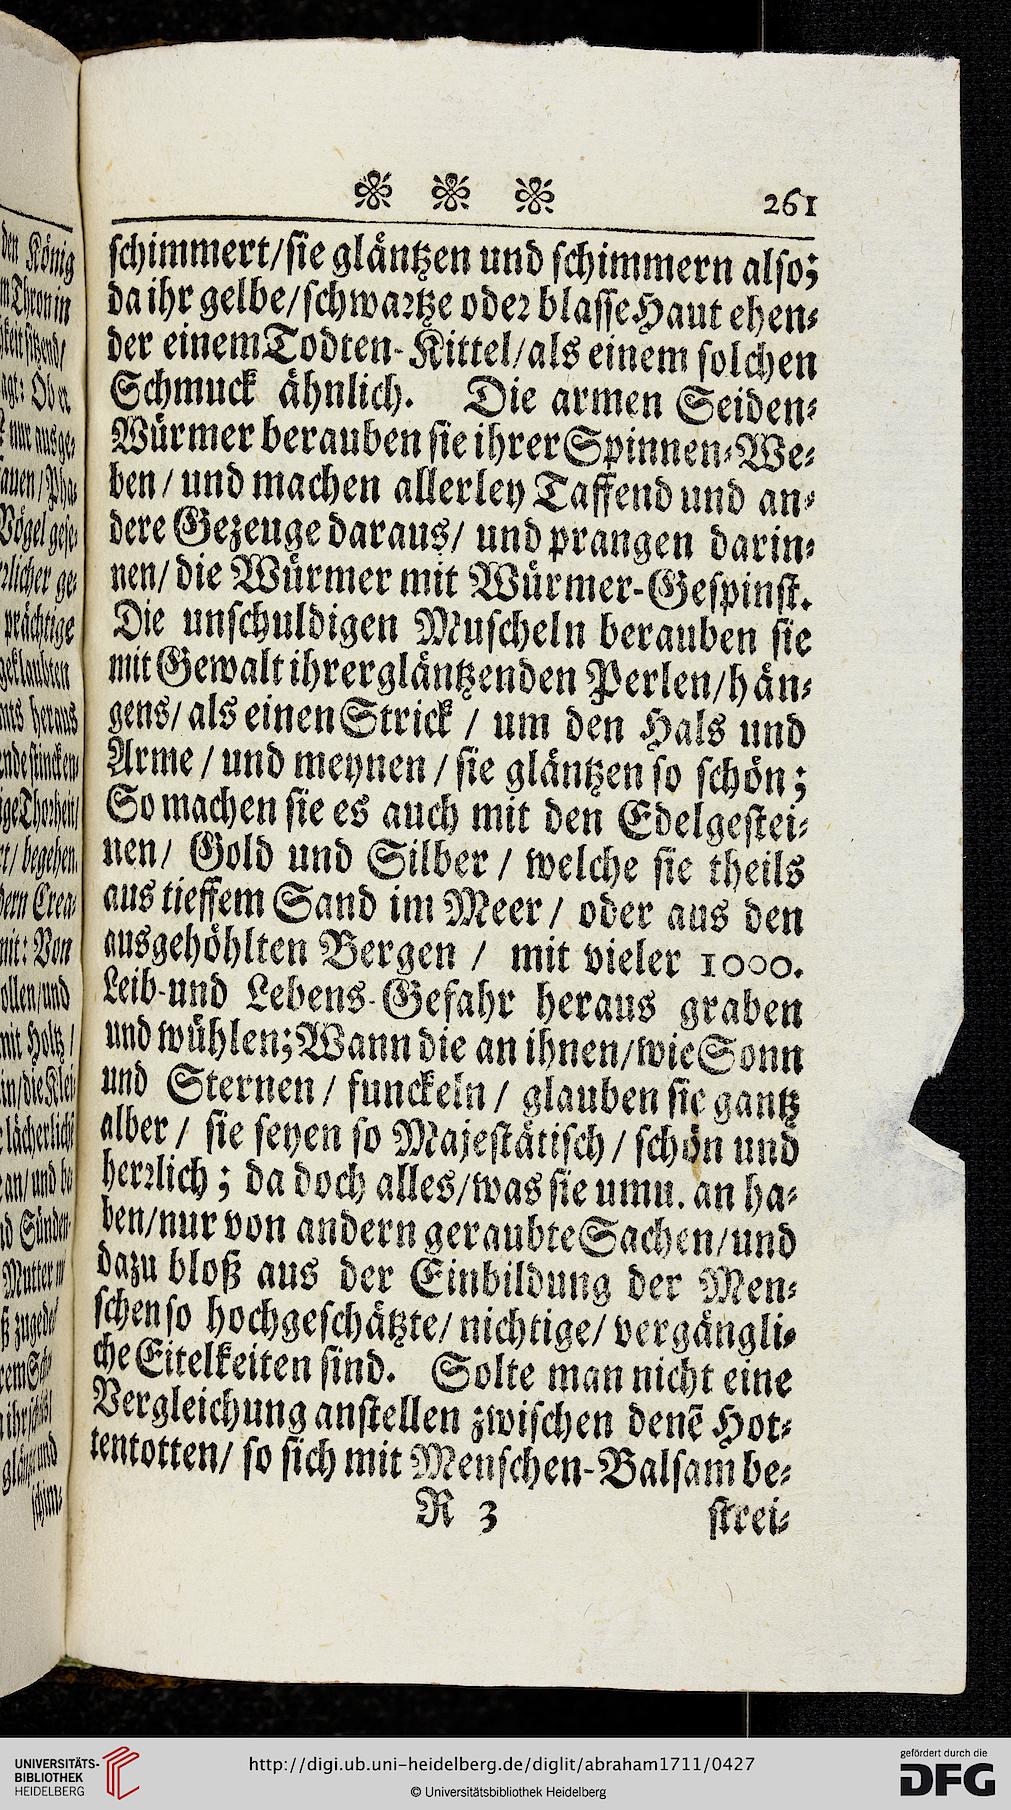 261
schimmert/sie gläntzen und schimmern also;
da ihr gelbe/schwartze oder blasse Haut ehen⸗
der einem Todten-Kittel/als einem solchen
Schmuck ähnlich. Die armen Seiden⸗
Würmer berauben sie ihrer Spinnen⸗We⸗
ben/ und machen allerley Taffend und an⸗
dere Gezeuge daraus/ und prangen darin⸗
nen/ die Würmer mit Würmer-Gespinst.
Die unschuldigen Muscheln berauben sie
mit Gewalt ihrer gläntzenden Perlen/hän⸗
gens/ als einen Strick / um den Hals und
Arme / und meynen / sie gläntzen so schön;
So machen sie es auch mit den Edelgestei⸗
nen/ Gold und Silber / welche sie theils
aus tieffem Sand im Meer / oder aus den
ausgehöhlten Bergen / mit vieler 1000.
Leib-und Lebens-Gefahr heraus graben
und wühlen; Wann die an ihnen/wie Sonn
und Sternen / funckeln / glauben sie gantz
alber / sie seyen so Majestätisch / schön und
herrlich ; da doch alles/was sie umu. an ha⸗
ben/nur von andern geraubte Sachen/und
dazu bloß aus der Einbildung der Men⸗
schen so hochgeschätzte/ nichtige/ vergängli⸗
che Eitelkeiten sind. Solte man nicht eine
Vergleichung anstellen zwischen denē Hot⸗
tentotten/ so sich mit Menschen-Balsam be⸗
R 3 strei⸗
den König
Thron in
nur ausge⸗
Vögel
prächtige
geklaubten
heraus
begehen.
Crea⸗
mit: Von
mit Holtz /
Mutter
schim⸗
UNIVERSITÄTS-
BIBLIOTHEK
HEIDELBERG
http://digi.ub.uni-heidelberg.de/diglit/abraham1711/0427
© Universitätsbibliothek Heidelberg
gefördert durch die
DFG